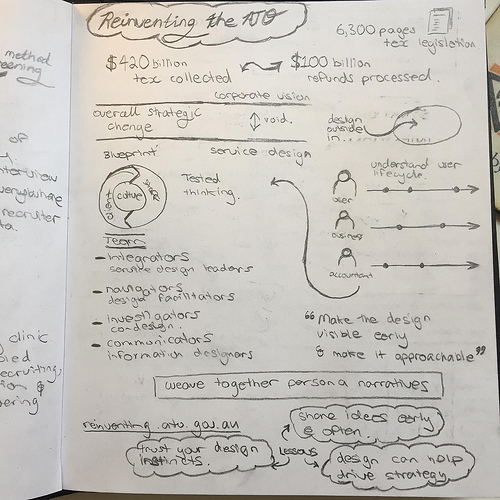 Reinventing the ATO
6,300 pages
tex legislation
$420 billion
tex collected
$100 billion
refunds processed.
corporate vision
overall strategic
change
void.
design
outside
in..
Blueprint
service design
understand user
lifecycle.
client
culture
staff
Tested
thinking.
user
business
accountant
Team
- integrators
service design leaders
- navigators
design facilitators
- investigators
co-design.
- communicators
information designers
"Make the design
visible early
& make it approachable"
weave together persona narratives
reinventing.ato.gov.au
share ideas early
& often.
trust your design
instincts.
lessons
design can help
drive strategy
method
of
interview
everywhere
recruiter
clinic
recruiting,